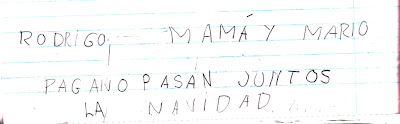 RODRIGO, MAMÁ Y MARIO
PAGANO PASAN JUNTOS
LA NAVIDAD...